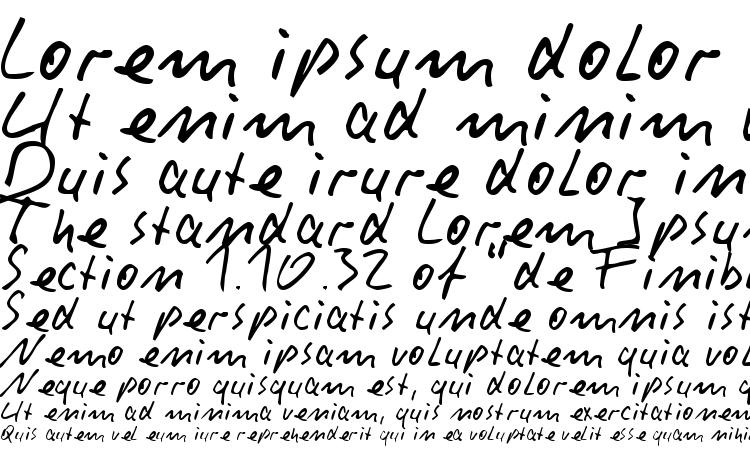 Lorem ipsum dolor
Ut enim ad minim
Duis aute irure dolor in
The standard Lorem Ipsum
Section 1.10.32 of "de Finib
Sed ut perspiciatis unde omnis ist
Nemo enim ipsam voluptatem quia vol
Neque porro quisquam est, qui dolorem ipsum q
Ut enim ad minima veniam, quis nostrum exercitationem
Quis autem vel eum iure reprehenderit qui in ea voluptate velit esse quam nihi